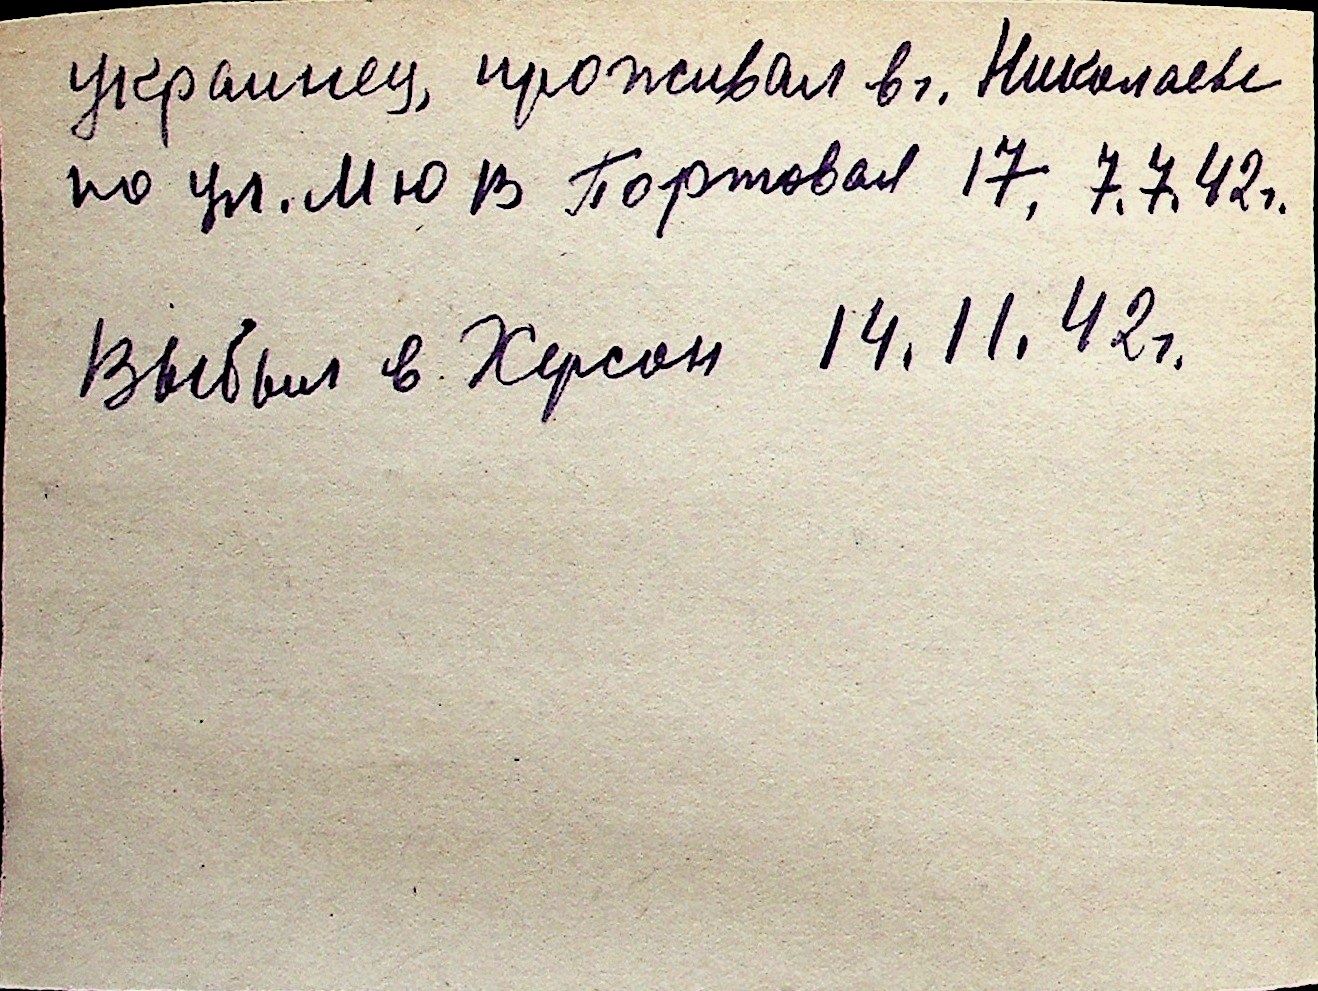 украинец, проживал в г. Николаеве
по ул. МЮВ Портовая 17, 7.7.42г.
Выбыл в Херсон 14.11.42г.